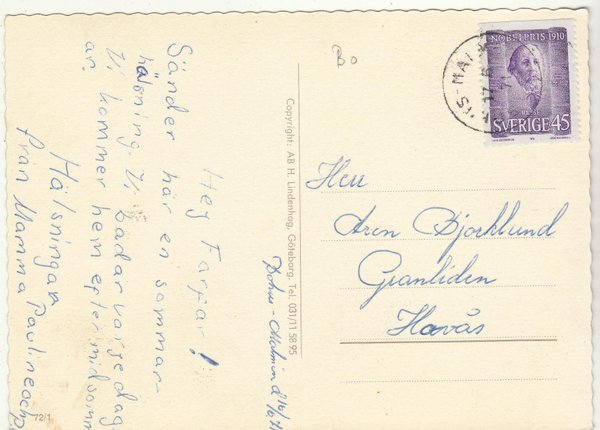 Hej Farfar!
Sänder här en sommar-
hälsning. Vi badar varje dag
Vi kommer hem efter midsom
ar.
Hälsningar
från Mamma Pauline och
Copyright: AB H. Lindenhag, Göteborg. Tel. 031/11 58 95
72/1
NOBELPRIS 1910
SVERIGE 45
Herr
Aron Björklund
Granliden
Hovås